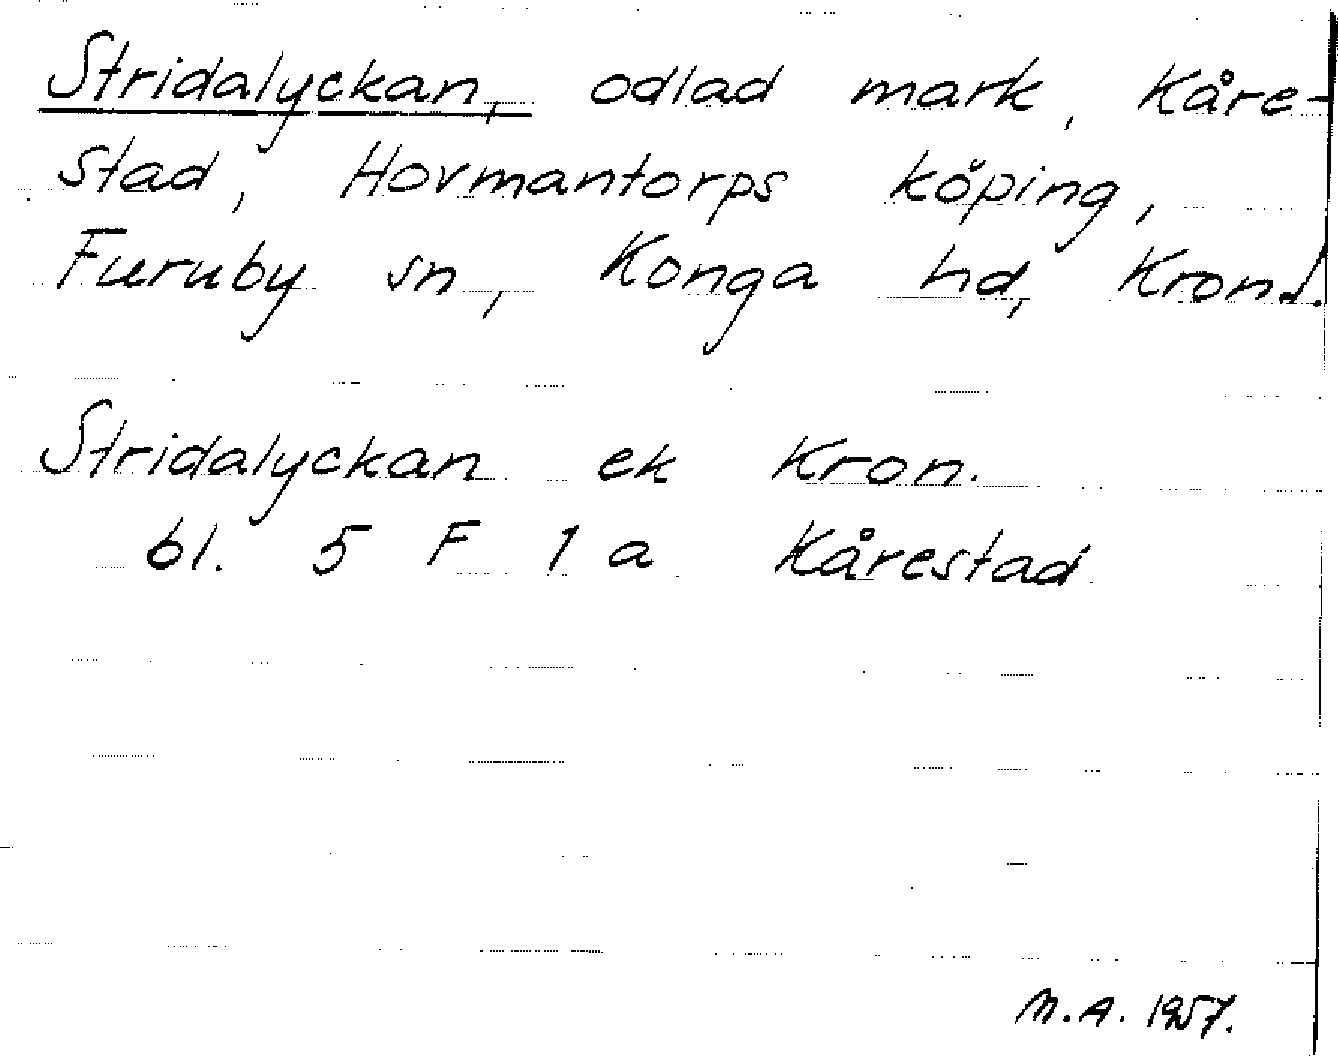 Stridalyckan, odlad mark, Kåre-
stad, Hovmantorps köping,
Furuby sn, Konga hd, Kronl.
Stridalyckan ek Kron.
bl. 5 F 1 a Kårestad
M.A. 1957.